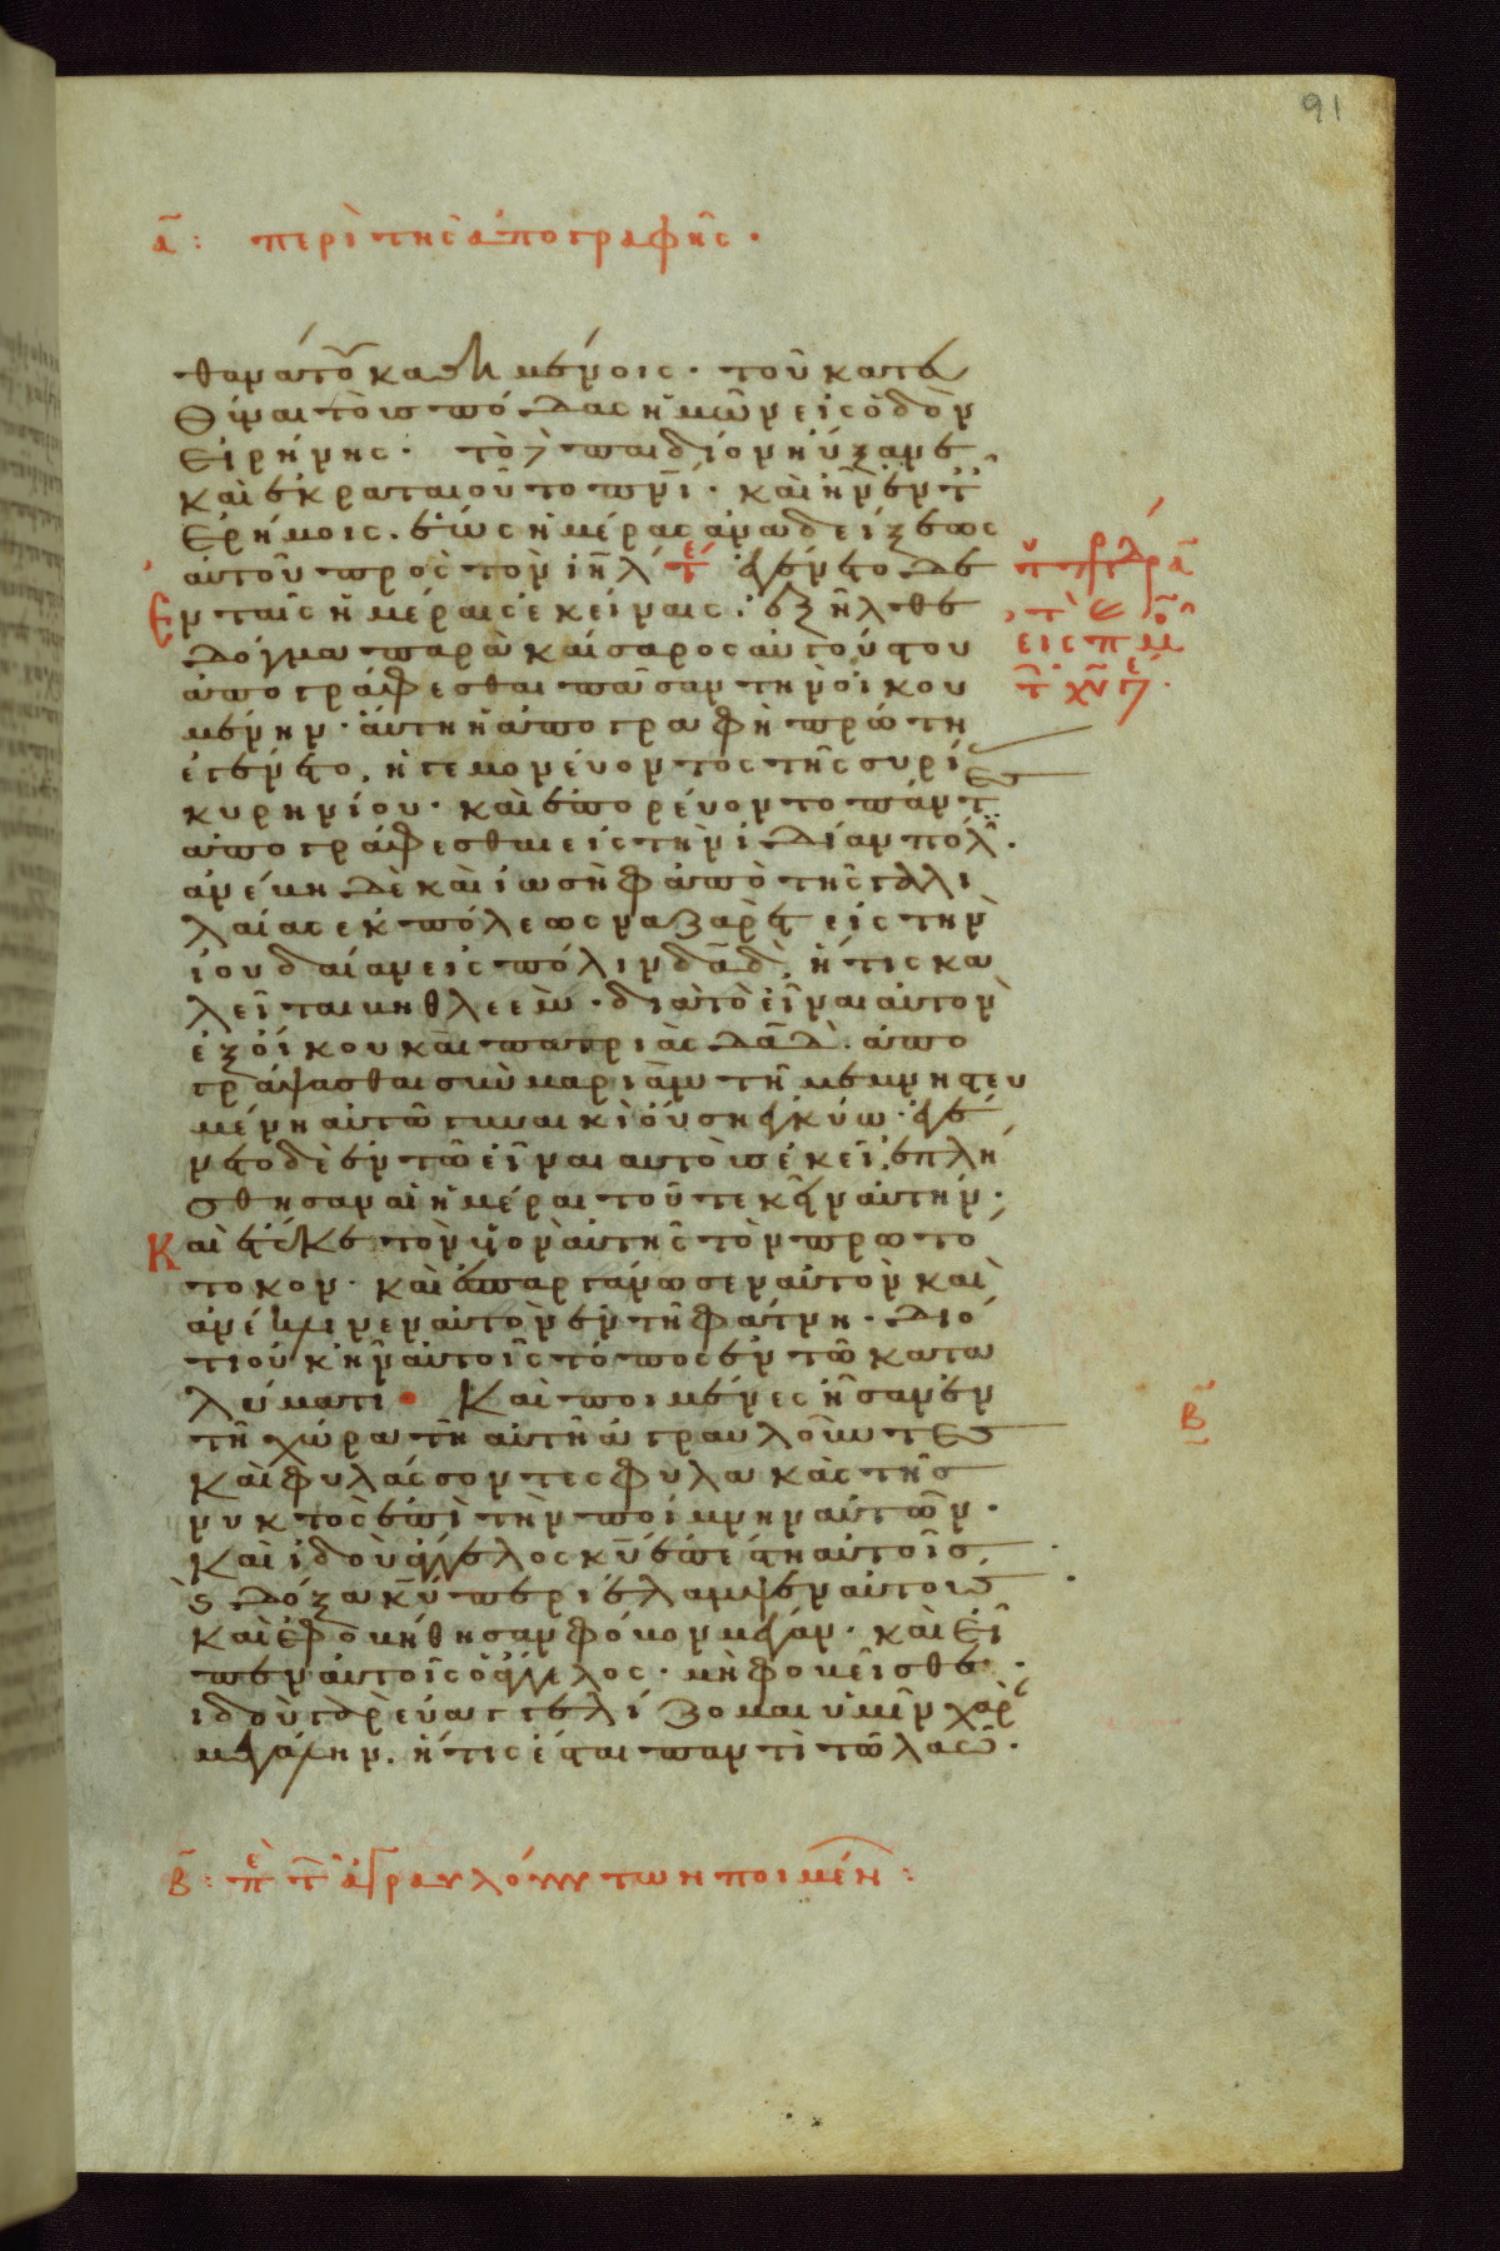 91
α̅: περὶ τῆς ἀπογραφῆς.
θανάτου καθημένοις. τοῦ κατευ
θύναι τοὺς πόδας ἡμῶν εἰς ὁδὸν
εἰρήνης. τὸ δὲ παιδίον ηὔξανε,
καὶ ἐκραταιοῦτο πν̅ι. καὶ ἦν ἐν τ
ἐρήμοις. ἕως ἡμέρας ἀναδείξεως
αὐτοῦ πρὸς τὸν ιη̅λ τε ἐγένετο δε
Ἐν ταῖς ἡμέραις ἐκείναις. ἐξῆλθε
δόγμα παρὰ καίσαρος αὐγούστου
ἀπογράφεσθαι πᾶσαν τὴν οἰκου
μένην. αὕτη ἡ ἀπογραφὴ πρώτη
ἐγένετο, ἡγεμονεύοντος τῆς συρίας
κυρηνίου. καὶ ἐπορεύοντο πάντ
ἀπογράφεσθαι εἰς τὴν ἰδίαν πόλ.
ἀνέβη δὲ καὶ ἰωσὴφ ἀπὸ τῆς γαλι
λαίας ἐκ πόλεως ναζαρὲτ εἰς τὴν
ἰουδαίαν εἰς πόλιν δα̅δ, ἥτις κα
λεῖται βηθλεέμ. διὰ τὸ εἶναι αὐτὸν
ἐξ οἴκου καὶ πατριᾶς δα̅δ. ἀπο
γράψασθαι σὺν μαριὰμ τῆ μεμνηστευ
μένη αὐτῶ γυναικὶ οὔση ἐγκύω. ἐγέ
νετο δὲ ἐν τῶ εἶναι αὐτοὺς ἐκεῖ, ἐπλή
σθησαν αἱ ἡμέραι τοῦ τεκεῖν αὐτήν.
Καὶ ἔτεκε τὸν υἱὸν αὐτῆς τὸν πρωτό
τοκον. καὶ ἐσπαργάνωσεν αὐτὸν καὶ
ἀνέκλινεν αὐτὸν ἐν τῆ φάτνη. διό
τι οὐκ ἦν αὐτοῖς τόπος ἐν τῶ κατα
λύματι. Καὶ ποιμένες ἦσαν ἐν
τῆ χώρα τῆ αὐτῆ ἀγραυλοῦντες
καὶ φυλάσσοντες φυλακὰς τῆς
νυκτὸς ἐπὶ τὴν ποίμνην αὐτῶν.
Καὶ ἰδοὺ ἄγγελος κυ̅ ἐπέστη αὐτοῖς,
ϗ δόξα κυ̅ περιέλαμψεν αὐτούς
Καὶ ἐφοβήθησαν φόβον μέγαν. καὶ εἶ
πεν αὐτοῖς ὁ ἄγγελος. μὴ φοβεῖσθε.
ἰδοὺ γὰρ εὐαγγελίζομαι ὑμῖν χαρ
μεγάλην. ἥτις ἔσται παντὶ τῶ λαῶ.
β̅
β̅: πε τ ἀγραυλούντων ποιμέν: